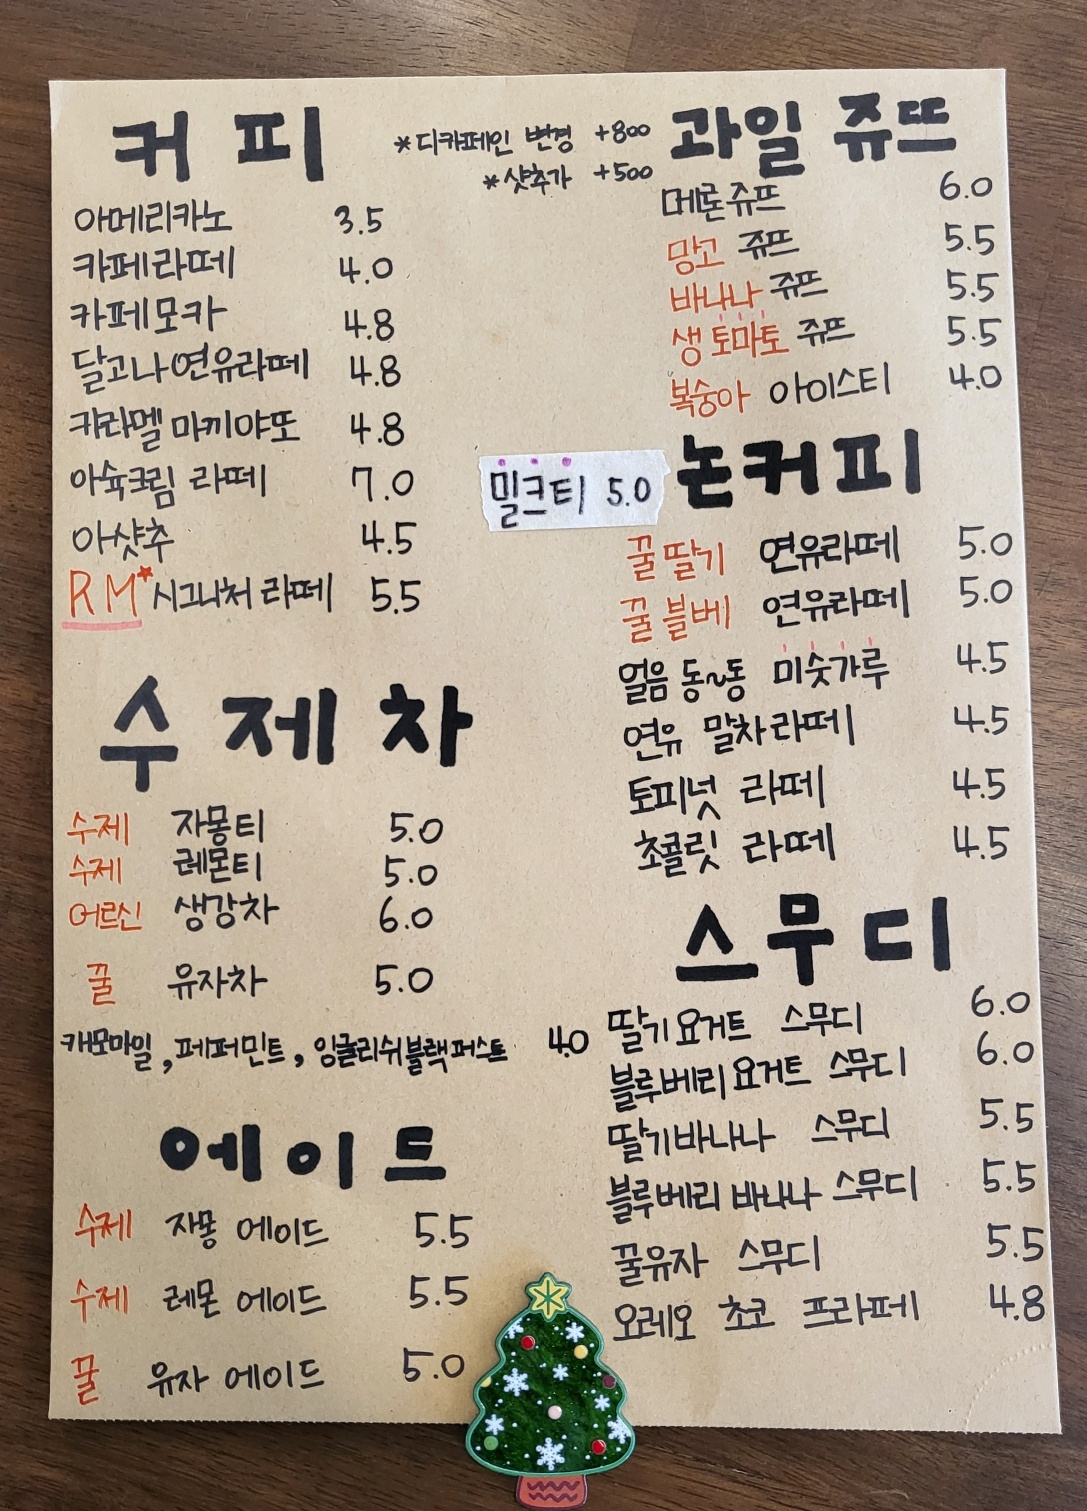 커피
*디카페인 변경 +800
*샷추가 +500
아메리카노 3.5
카페라떼 4.0
카페모카 4.8
달고나연유라떼 4.8
카라멜 마끼야또 4.8
아슈크림 라떼 7.0
아샷추 4.5
RM*시그니처 라떼 5.5
수제차
수제 자몽티 5.0
수제 레몬티 5.0
어르신 생강차 6.0
꿀 유자차 5.0
캐모마일, 페퍼민트, 잉글리쉬블랙퍼스트 4.0
에이드
수제 자몽 에이드 5.5
수제 레몬 에이드 5.5
꿀 유자 에이드 5.0
과일 쥬뜨
메론쥬뜨 6.0
망고 쥬뜨 5.5
바나나 쥬뜨 5.5
생토마토 쥬뜨 5.5
복숭아 아이스티 4.0
밀크티 5.0
논커피
꿀딸기 연유라떼 5.0
꿀블베 연유라떼 5.0
얼음동~동 미숫가루 4.5
연유 말차라떼 4.5
토피넛 라떼 4.5
초콜릿 라떼 4.5
스무디
딸기요거트 스무디 6.0
블루베리요거트 스무디 6.0
딸기바나나 스무디 5.5
블루베리바나나 스무디 5.5
꿀유자 스무디 5.5
오레오 초코 프라페 4.8